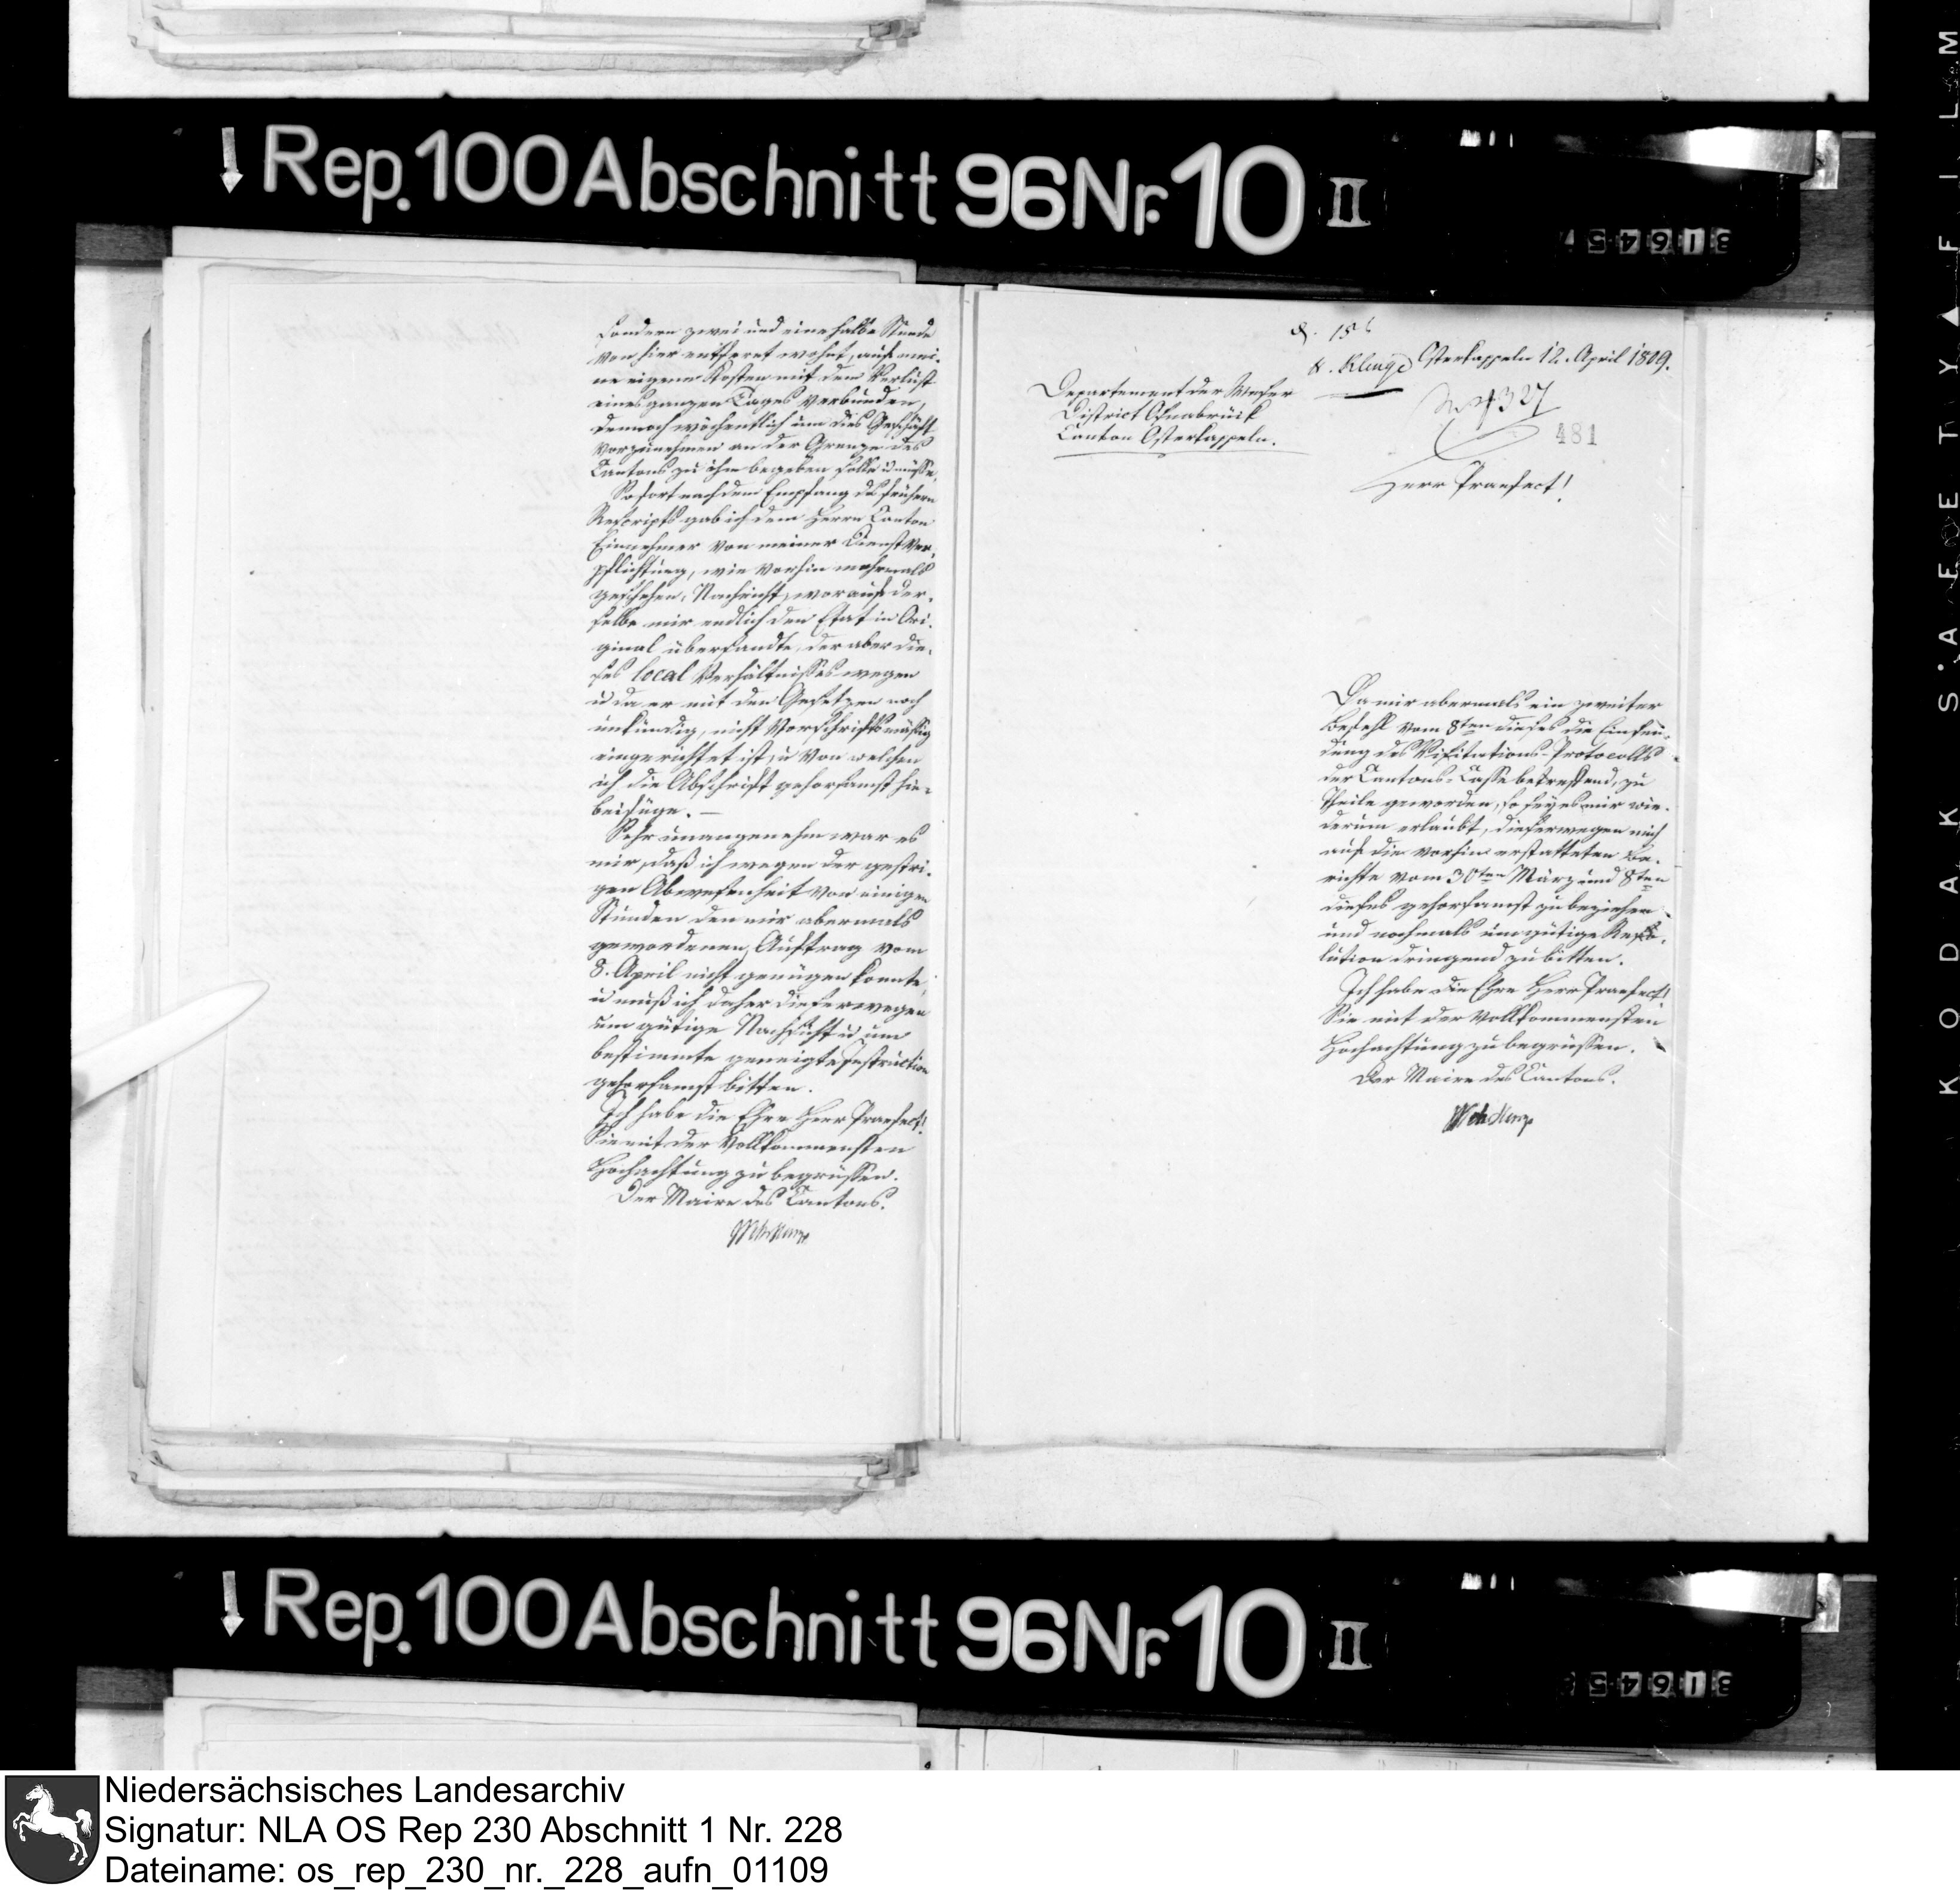 Rep. 100 Abschnitt 96 Nr. 10 II
31645
sondern zwei und eine halbe Stunde
von hier entfernt wohnt, auf mei-
ne eigene Kosten mit dem Verlust
eines ganzen Tages verbunden,
dennoch wöchentlich um dies Geschäft
vorzunehmen an der Grenze des
Cantons zu ihm begeben solle u müsse.
Sofort nach dem Empfang des frühern
Rescripts gab ich dem Herrn Canton
Einnehmer von meiner Dienstver-
pflichtung, wie vorhin mehrmals
geschehen, Nachricht, worauf der-
selbe mir endlich den Etat in Ori-
ginal übersandte, der aber die-
ses local Verhältnisses wegen
u da er mit den Gesetzen noch
unkündig, nicht Vorschriftsmäßig
eingerichtet ist, u von welchen
ich die Abschrift gehorsamst hie-
beifüge. —
Sehr unangenehm war es
mir, daß ich wegen der gestri-
gen Abwesenheit von einigen
Stunden den mir abermals
gewordenen Auftrag vom
8. April nicht genügen konnte,
u muß ich daher dieserwegen
um gütige Nachsicht u um
bestimmte geneigte Instruction
gehorsamst bitten.
Ich habe die Ehre Herr Praefect!
Sie mit der Vollkommensten
Hochachtung zu begrüssen.
Der Maire des Cantons.
Osterkappeln 12. April 1809.
Klinge
Departement der Weser
District Osnabrück
Canton Osterkappeln.
481
Herr Praefect!
Da mir abermals ein zweiter
Befehl vom 8ten dieses die Einsen-
dung des Visitations-Protocolls
der Cantons-Casse betreffend, zu
Theile geworden, so sey es mir wie-
derum erlaubt, dieserwegen mich
auf die vorhin erstatteten Be-
richte vom 30ten März und 8ten
dieses gehorsamst zu beziehen
und nochmals um gütige Reso-
lution dringend zu bitten.
Ich habe die Ehre Herr Praefect!
Sie mit der Vollkommensten
Hochachtung zu begrüssen.
Der Maire des Cantons.
Rep. 100 Abschnitt 96 Nr. 10 II
31645
KODAK SAFETY FILM
Niedersächsisches Landesarchiv
Signatur: NLA OS Rep 230 Abschnitt 1 Nr. 228
Dateiname: os_rep_230_nr._228_aufn_01109